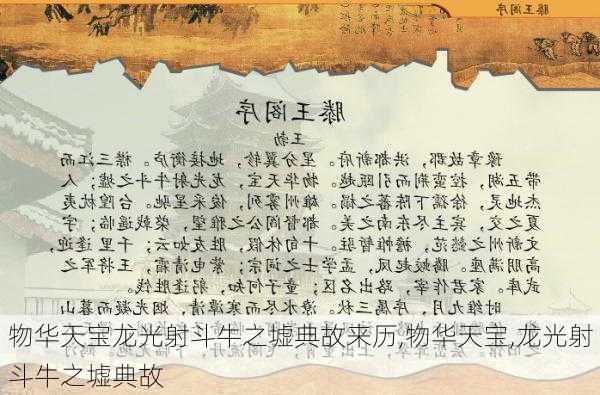 滕王阁序
滕王阁序
王勃
豫章故郡，洪都新府。星分翼轸，地接衡庐。襟三江而
带五湖，控蛮荆而引瓯越。物华天宝，龙光射牛斗之墟；人
杰地灵，徐孺下陈蕃之榻。雄州雾列，俊采星驰。台隍枕夷
夏之交，宾主尽东南之美。都督阎公之雅望，棨戟遥临；宇
文新州之懿范，襜帷暂驻。十旬休假，胜友如云；千里逢迎，
高朋满座。腾蛟起凤，孟学士之词宗；紫电清霜，王将军之
武库。家君作宰，路出名区；童子何知，躬逢胜饯。
时维九月，序属三秋。潦水尽而寒潭清，烟光凝而暮山
物华天宝龙光射斗牛之墟典故来历,物华天宝,龙光射
斗牛之墟典故